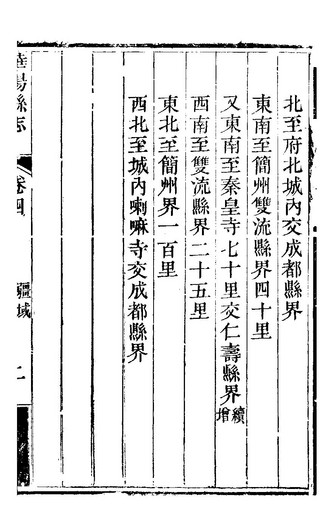 北至府北城內交成都縣界
東南至簡州雙流縣界四十里
又東南至秦皇寺七十里交仁壽縣界續增
西南至雙流縣界二十五里
東北至簡州界一百里
西北至城內喇嘛寺交成都縣界
華陽縣志
卷四
疆域
二